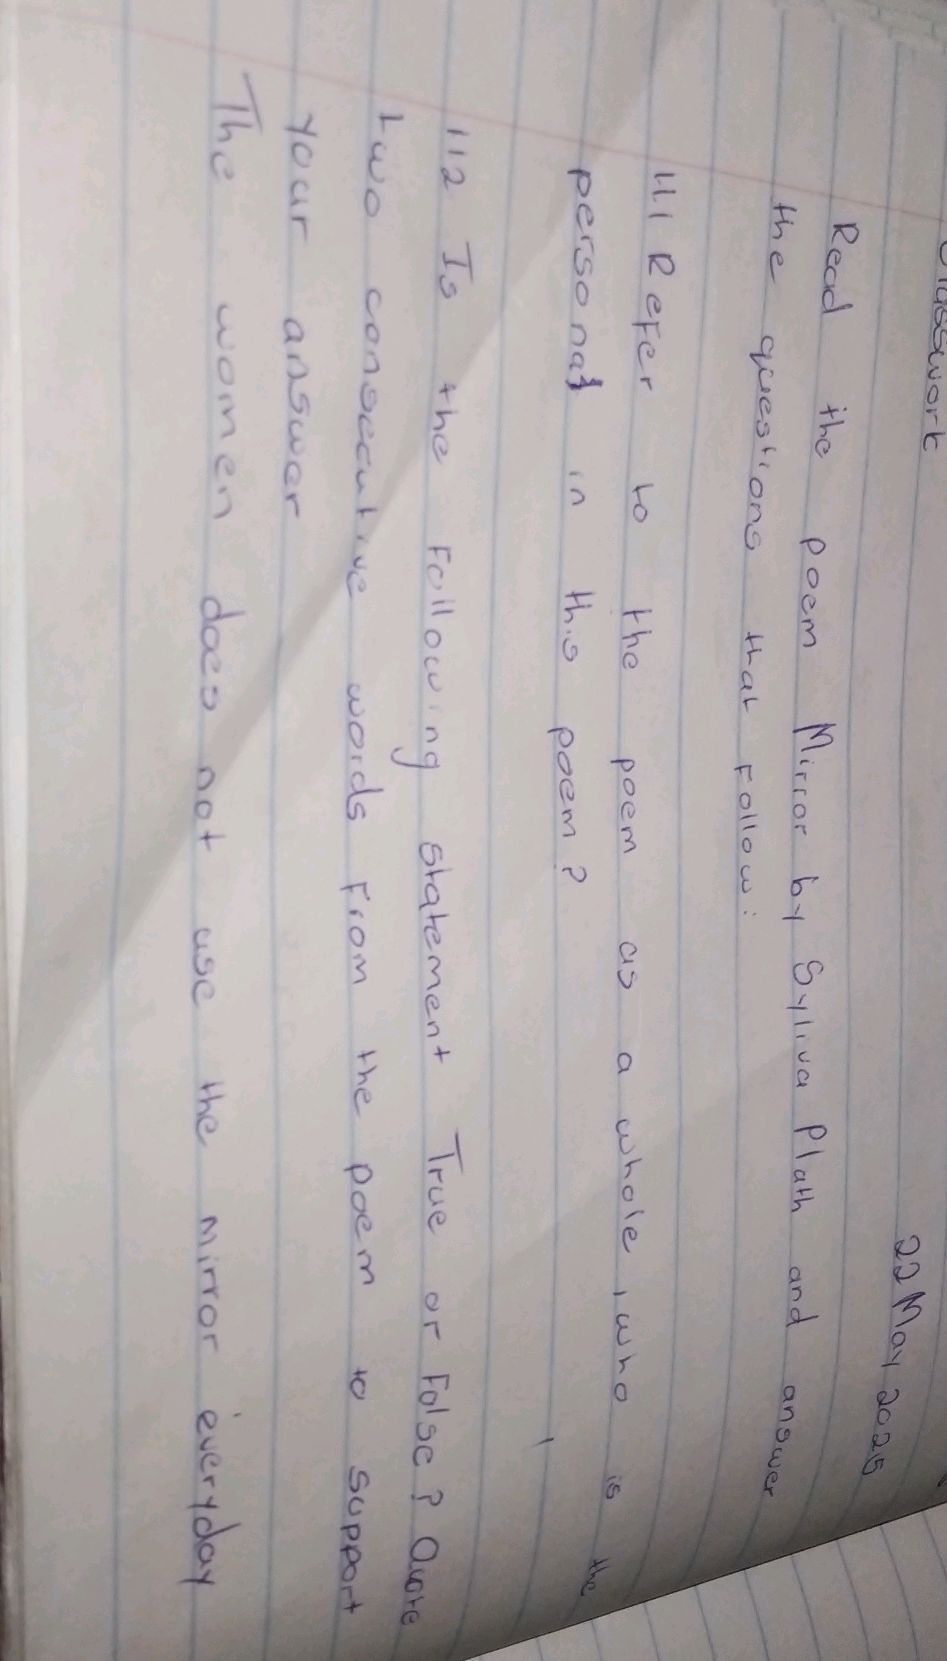 Classwork
22 May 2025
Read the poem Mirror by Syliva Plath and answer
the questions that Follow:
1.1 Refer to the poem as a whole, who is the
persona in this poem?
1.1.2 Is the Following statement True or False? Quote
two consecutive words From the poem to support
your answer
The women does not use the mirror everyday